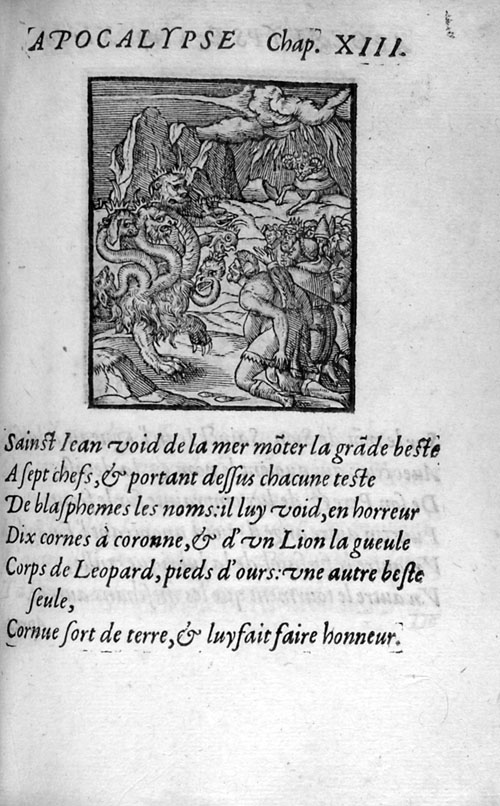 APOCALYPSE Chap. XIII.
Sainſt Iean void de la mer mõter la grãde beſte
A ſept chefs, & portant deſſus chacune teſte
De blaſphemes les noms: il luy void, en horreur
Dix cornes à coronne, & d'vn Lion la gueule
Corps de Leopard, pieds d'ours: vne autre beſte
ſeule,
Cornue ſort de terre, & luy fait faire honneur.